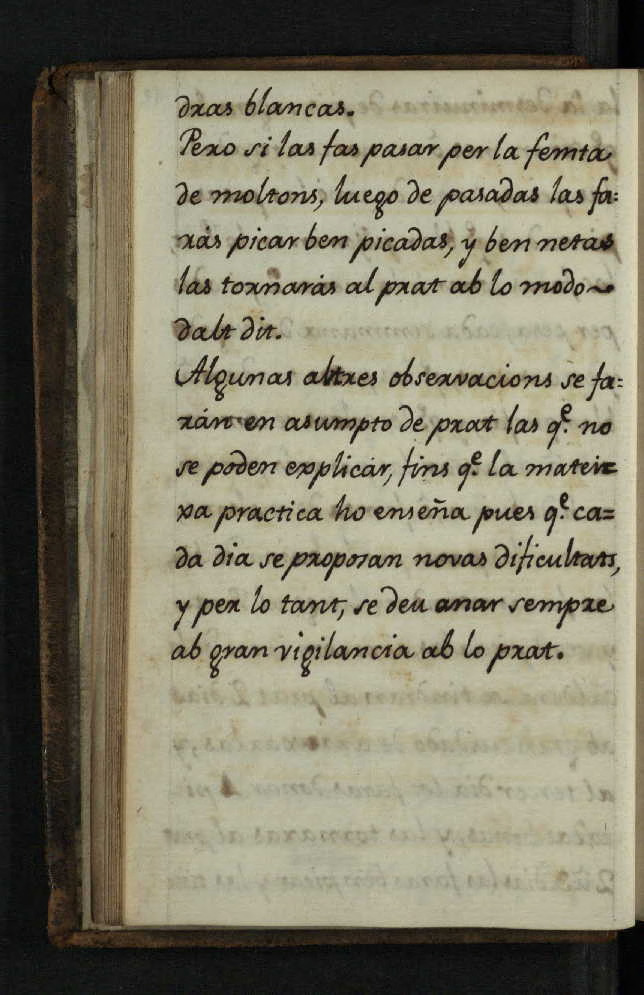 dras blancas.
Pero si las fas pasar per la femta
de moltons, luego de pasadas las fa=
rás picar ben picadas, y ben netas
las tornarás al prat ab lo modo
dalt dit.
Algunas altres observacions se fa=
rán en asumpto de prat las q.e no
se poden explicar, fins q.e la matei=
xa practica ho enseña pues q.e ca=
da dia se proposan novas dificultats,
y per lo tant, se deu anar sempre
ab gran vigilancia ab lo prat.